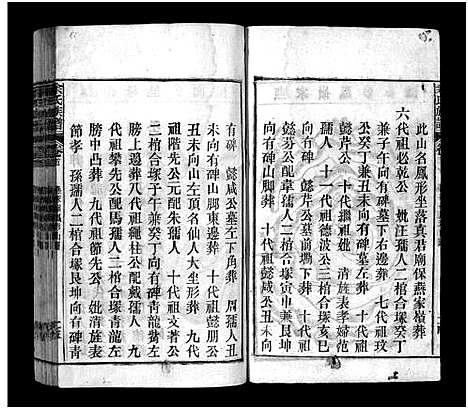 此山名鳳形坐落真君廟保燕家嶺葬
六代祖必乾公 妣汪孺人二棺合塚癸丁
兼子午向有碑墓下右邊葬 七代祖玟
公癸丁兼丑未向有碑墓左下方葬
懿芹公 十代繼祖妣 清旌表孝婦范
孺人 十一代祖德波公三棺合塚亥巳
向有碑 懿芹公墓左上角葬 十代祖
懿芬公配章孺人二棺合塚寅申兼艮坤
向有碑山脚葬 十代祖懿咸公丑未向
有碑 懿咸公墓左下角葬 周孺人丑
未向有碑山脚東邊葬 十代祖懿朋公
丑未向山左頂名仙人大坐形葬 九代
祖階先公元配朱孺人 十代祖文著公
二棺合塚子午兼癸丁向有碑青龍翁左
勝上邊葬八代祖繩柱公配戴孺人 九
代祖攀先公配馬孺人二棺合塚青龍左
勝中凸葬 九代祖節先公 妣清旌表
節孝 孫孺人二棺合塚艮坤向有碑青